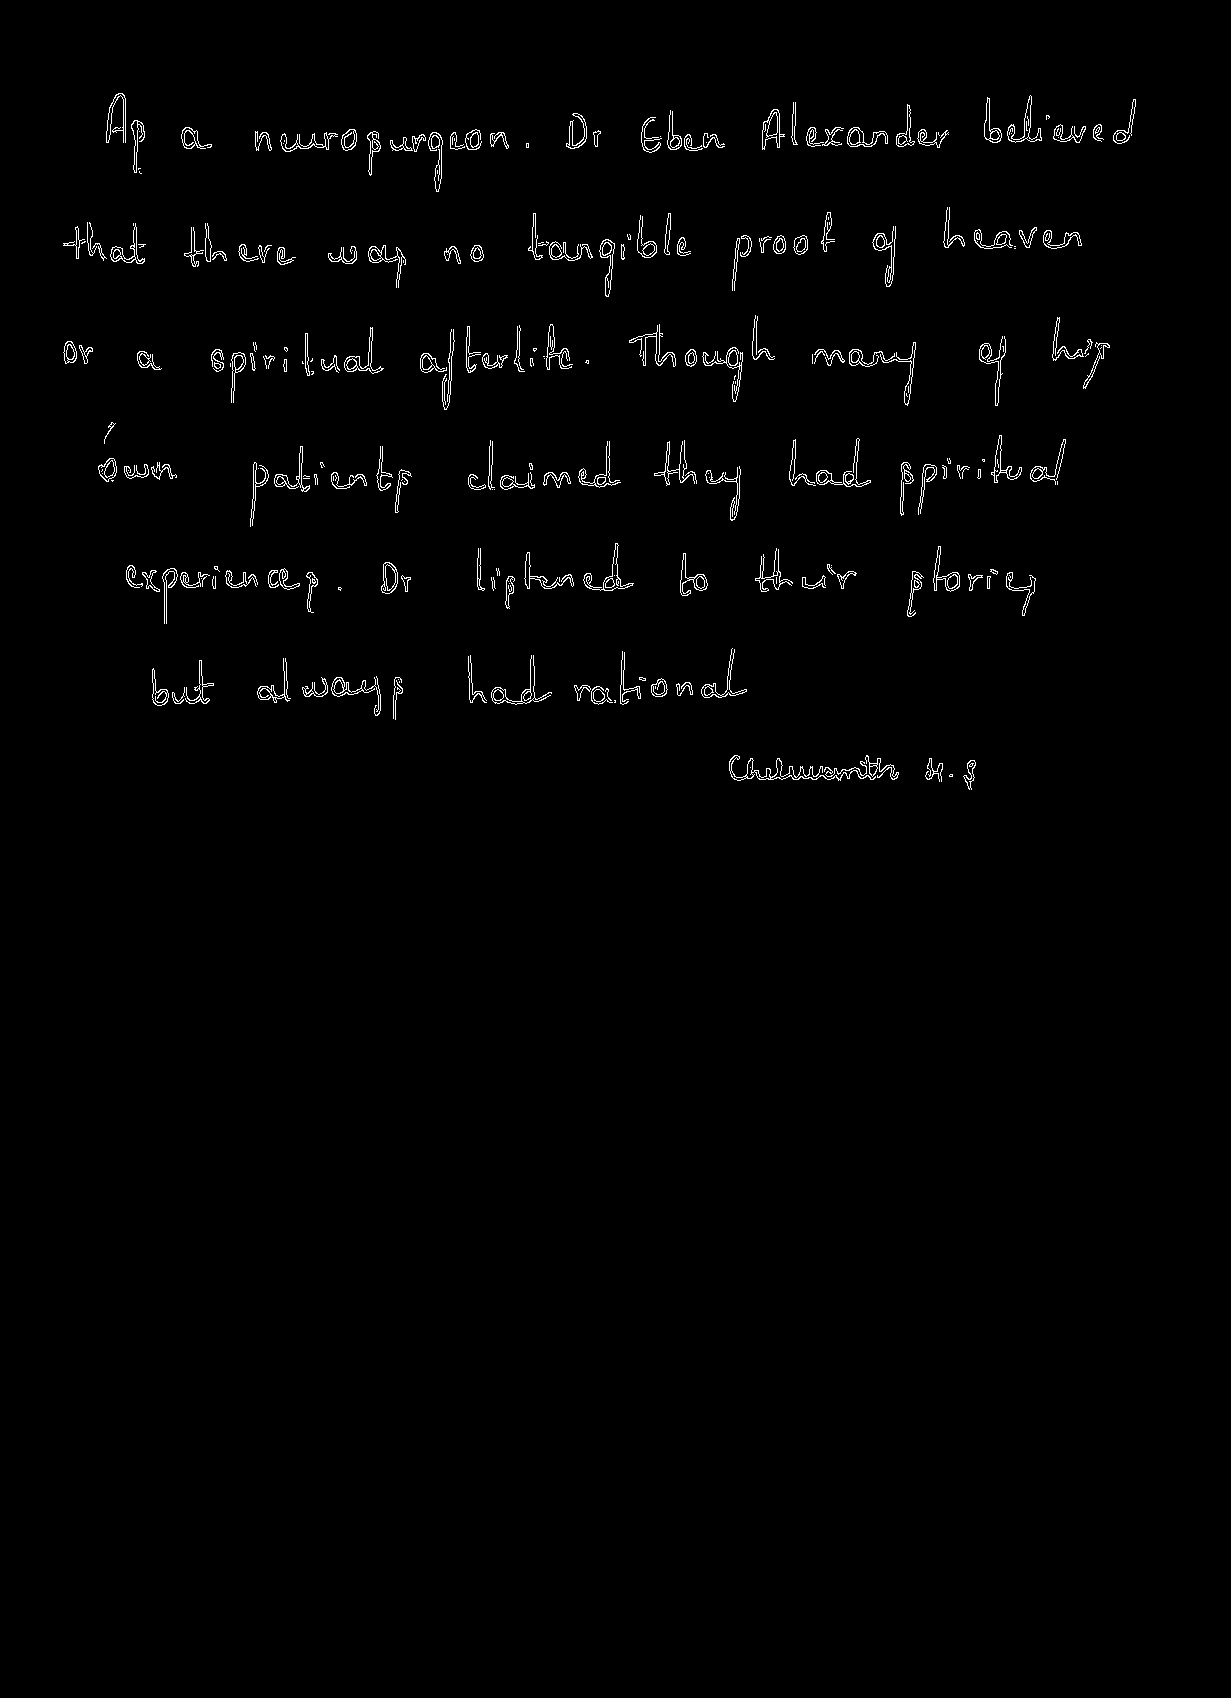 As a neurosurgeon. Dr Eben Alexander believed
that there was no tangible proof of heaven
or a spiritual afterlife. Though many of his
own patients claimed they had spiritual
experiences. Dr listened to their stories
but always had rational
H.S